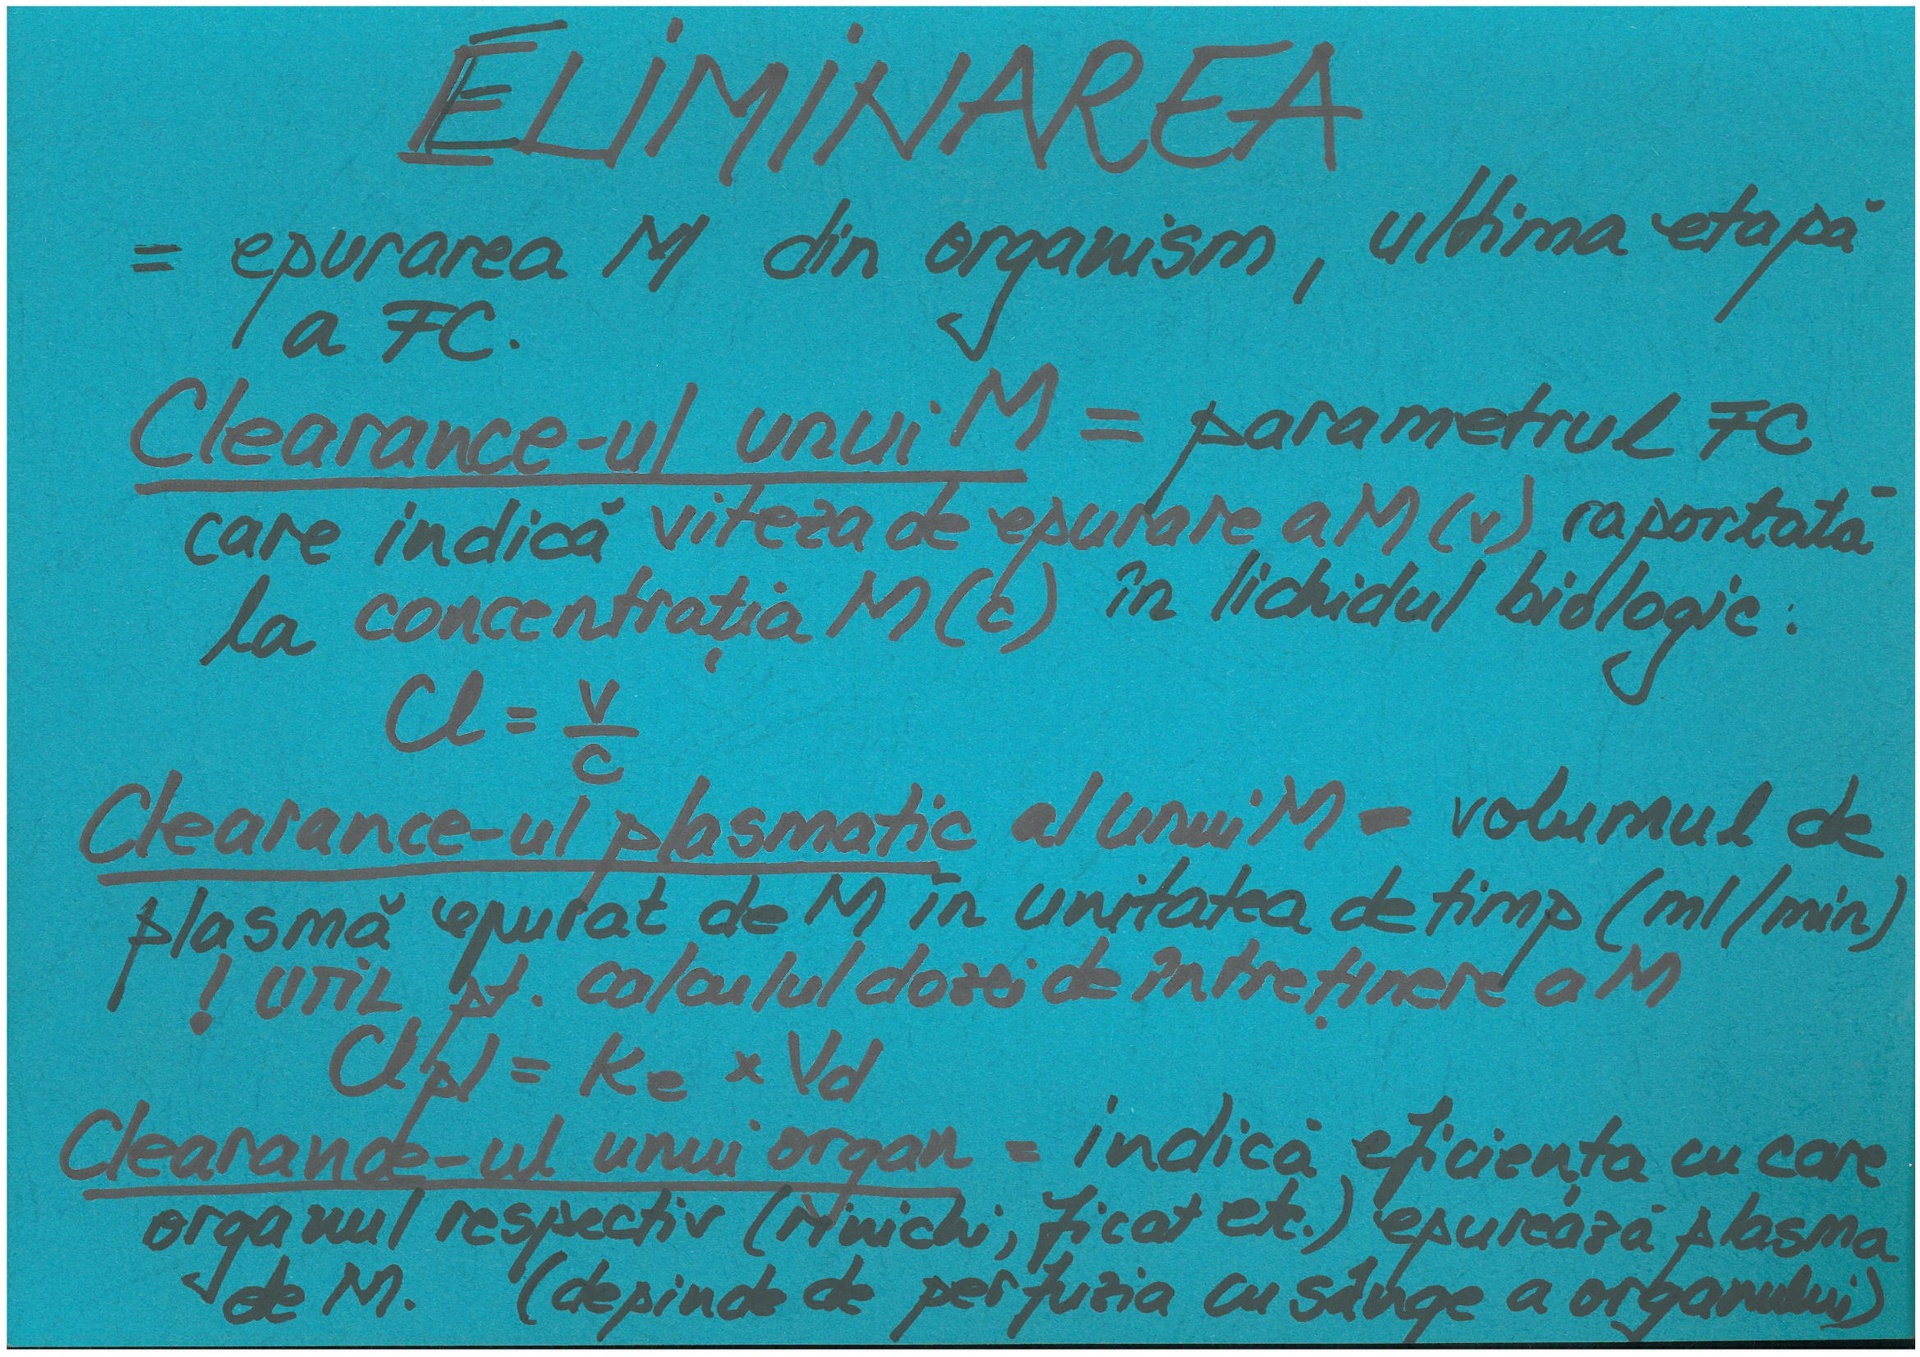 ELIMINAREA
= epurarea M din organism, ultima etapă
a FC.
Clearance-ul unui M = parametrul FC
care indică viteza de epurare a M (v) raportată
la concentrația M (c) în lichidul biologic:
Cl = v/c
Clearance-ul plasmatic al unui M = volumul de
plasmă epurat de M în unitatea de timp (ml/min)
! UTIL pt. calculul dozei de întreținere a M
Clpl = Ke × Vd
Clearance-ul unui organ = indică eficiența cu care
organul respectiv (rinichi, ficat etc.) epurează plasma
de M. (depinde de perfuzia cu sânge a organului)